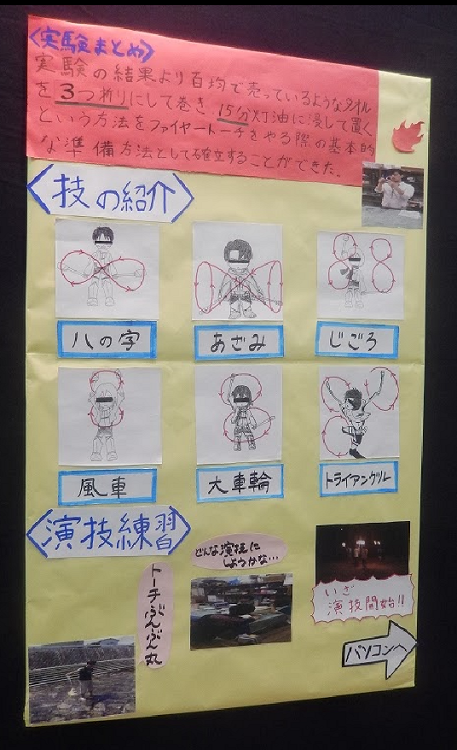 〈実験まとめ〉
実験の結果より百均で売っているようなタオル
を3つ折りにして巻き、15分灯油に浸して置く
という方法をファイヤートーチをやる際の基本的
な準備方法として確立することができた。
技の紹介
八の字
あざみ
じごろ
風車
大車輪
トライアングル
演技練習
トーチぶんぶん丸
どんな演技に
しようかな…
いざ
演技開始!!
パソコンへ